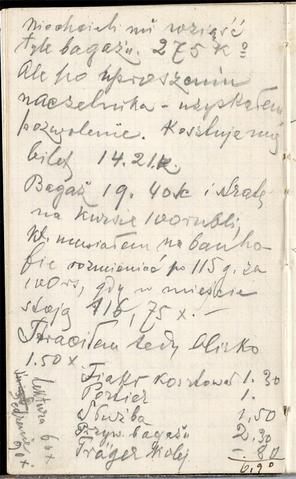 Niechcieli mi wziąść
tyle bagażu. 275 K⁰
Ale po uproszeniu
naczelnika – uzyskałem
pozwolenie. Kosztuje mię
bilet 14.21 k.
Bagaż 19.40 k i stratę
na kursie 100 rubli
musiałem na banho-
fie rozmieniać po 115 g. za
100 rs, gdy w mieście
stoją 116,75 x. –
Straciłem tedy blisko
1.50 x
Fjakr kosztował 1.30
Portier 1.
Służba 1,50
Przyw. bagażu 2.30
Träger kolej – 80
6,90
Lektura 60 x
90 x